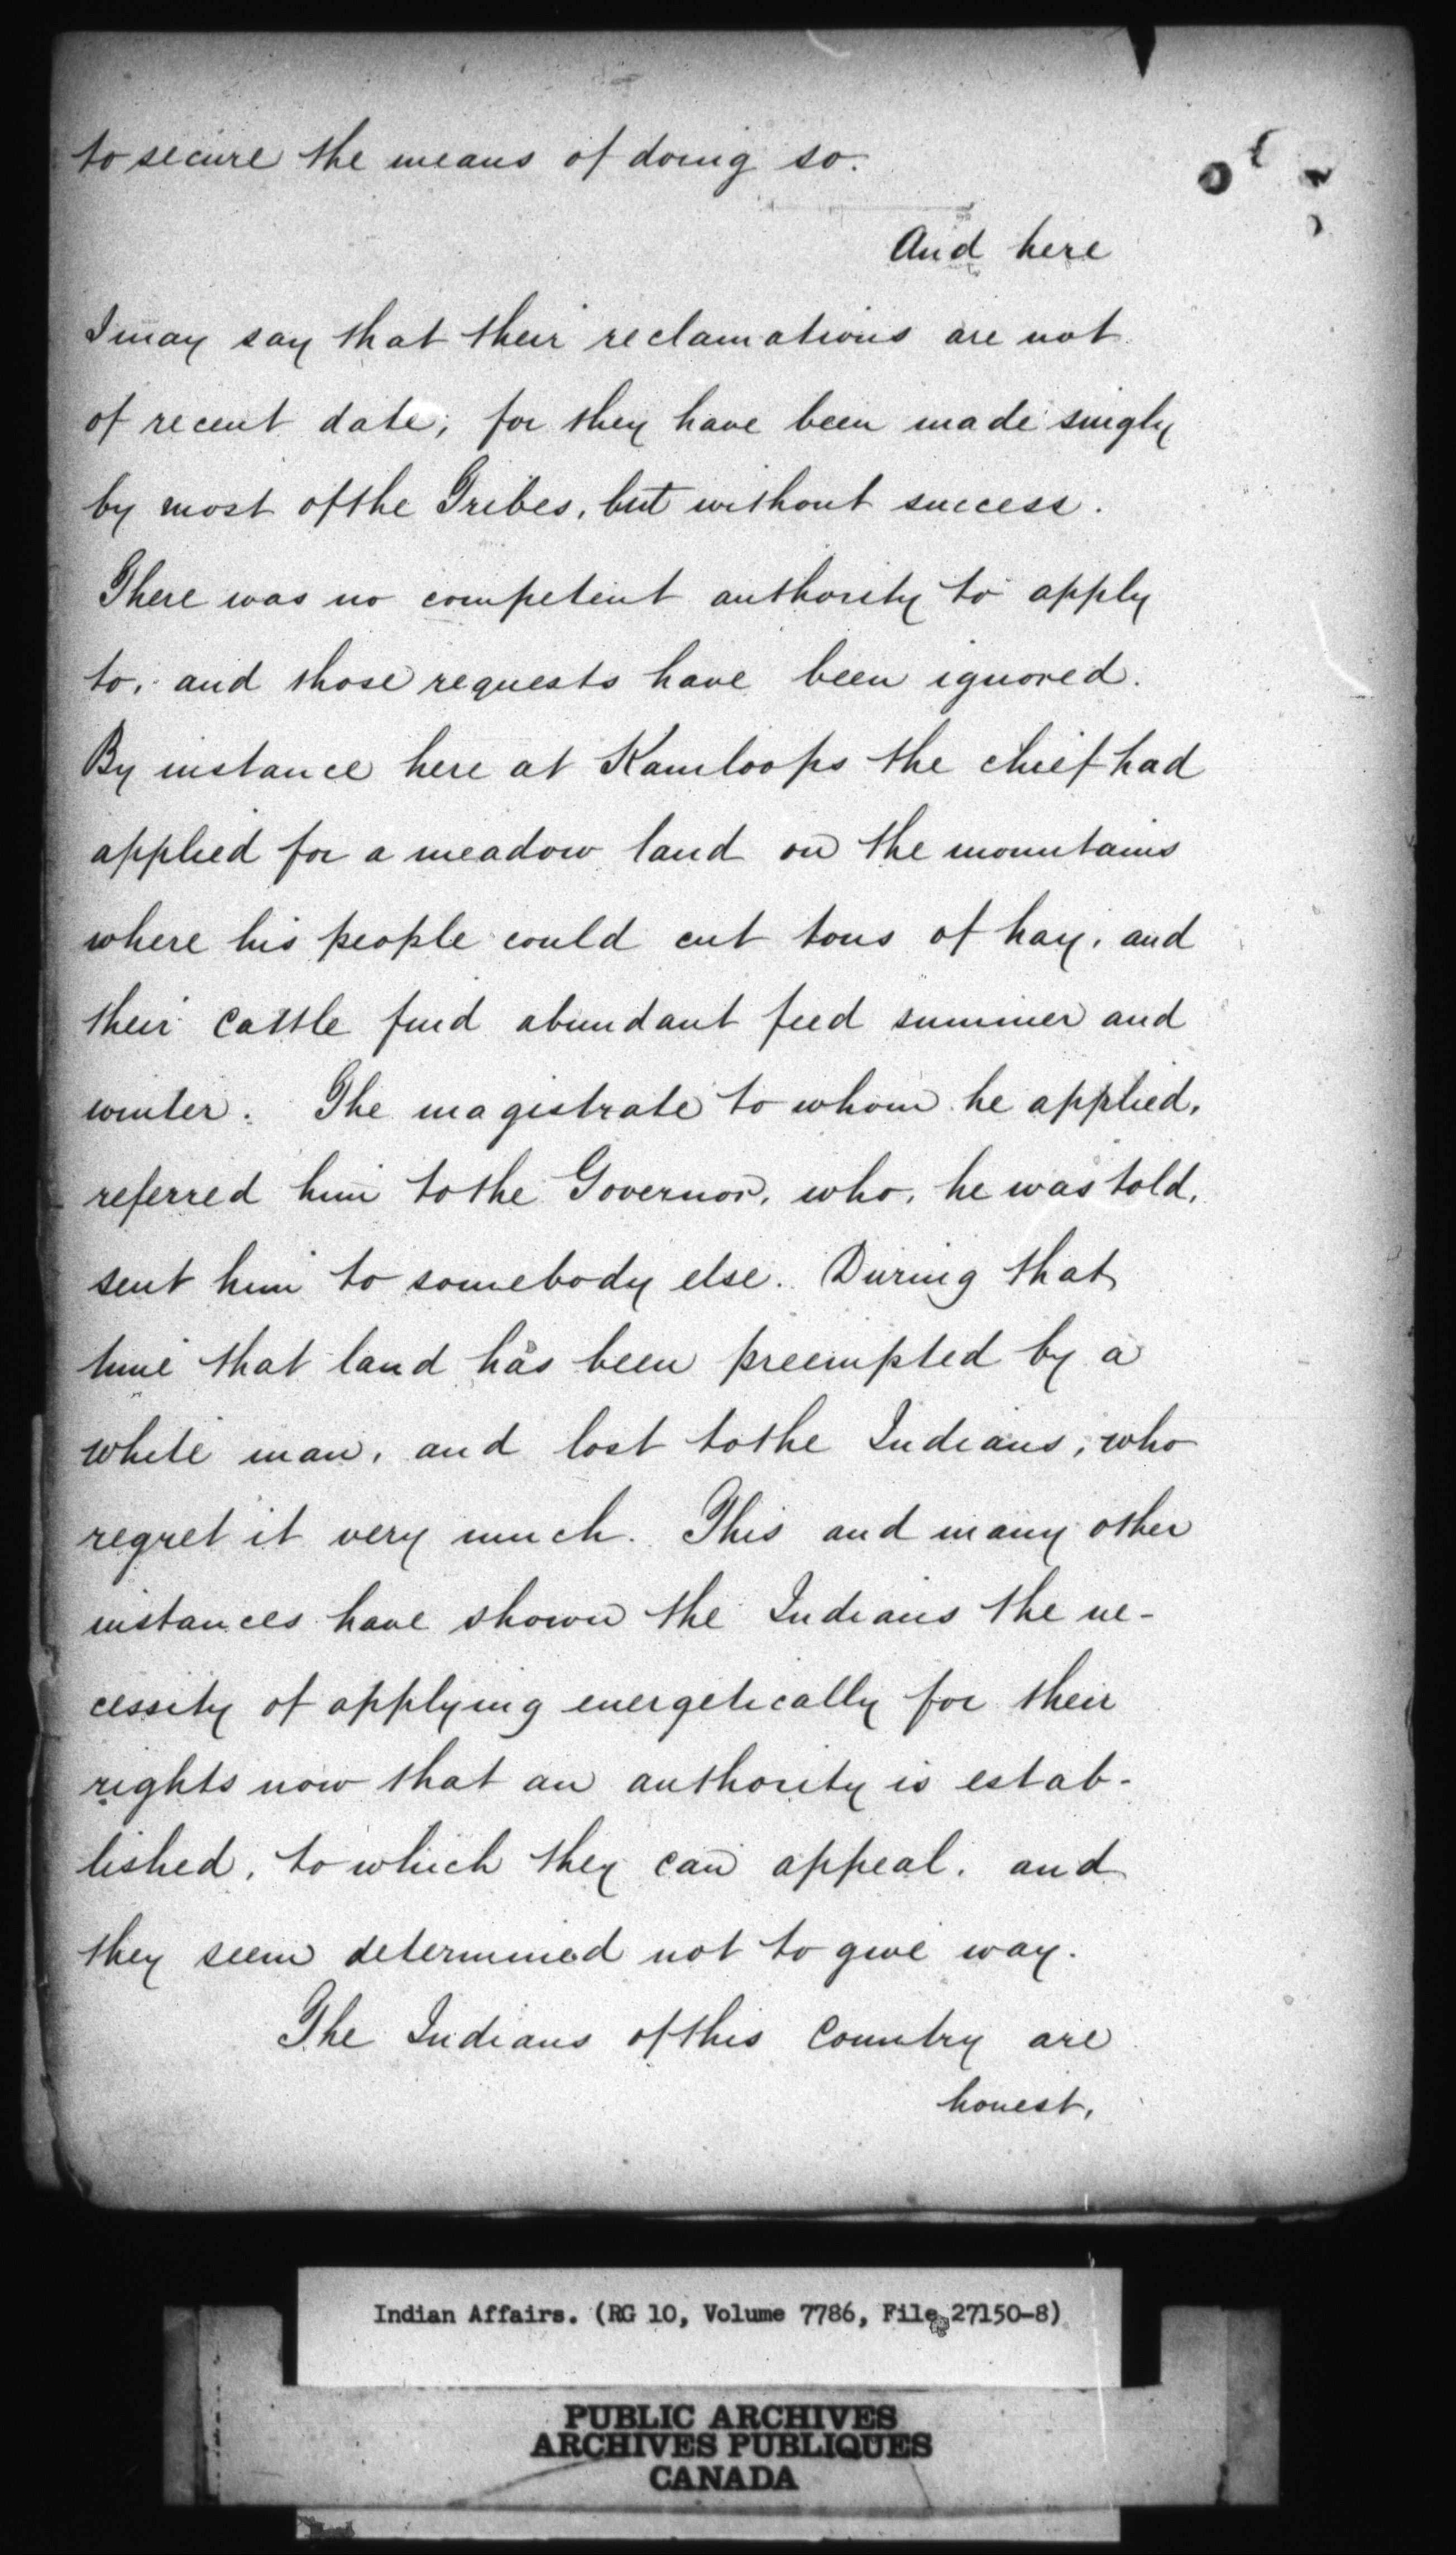 to secure the means of doing so.
And here
I may say that their reclamations are not
of recent date; for they have been made singly
by most of the Tribes, but without success.
There was no competent authority to apply
to, and those requests have been ignored.
By instance here at Kamloops the chief had
applied for a meadow land on the mountains
where his people could cut tons of hay, and
their cattle find abundant feed summer and
winter. The magistrate to whom he applied,
referred him to the Governor, who, he was told,
sent him to somebody else. During that
time that land has been preempted by a
white man, and lost to the Indians, who
regret it very much. This and many other
instances have shown the Indians the ne-
cessity of applying energetically for their
rights now that an authority is estab-
lished, to which they can appeal, and
they seem determined not to give way.
The Indians of this Country are
honest,
Indian Affairs. (RG 10, Volume 7786, File 27150-8)
PUBLIC ARCHIVES
ARCHIVES PUBLIQUES
CANADA